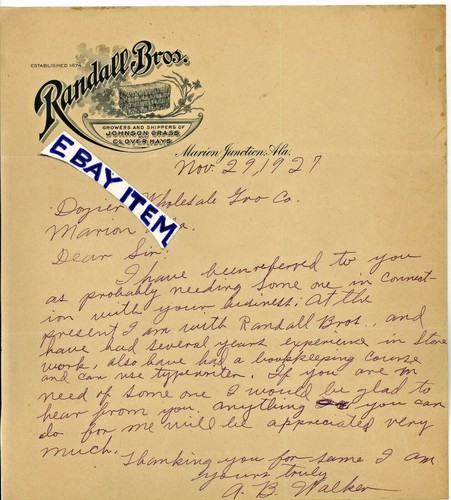 ESTABLISHED 1874
Randall Bros.
GROWERS AND SHIPPERS OF
JOHNSON GRASS
AND
CLOVER HAYS
Marion Junction, Ala.
Nov. 29, 1927
EBAY ITEM
Dozier Wholesale Gro Co.
Marion
Dear Sir:
I have been referred to you
as probably needing some one in connect-
ion with your business. At the
present I am with Randall Bros., and
have had several years experience in Store
work, also have had a bookkeeping course
and can use typewriter. If you are in
need of some one I would be glad to
hear from you. anything you can
do for me will be appreciated very
much.
Thanking you for same I am
Yours truly
A. B. Walker